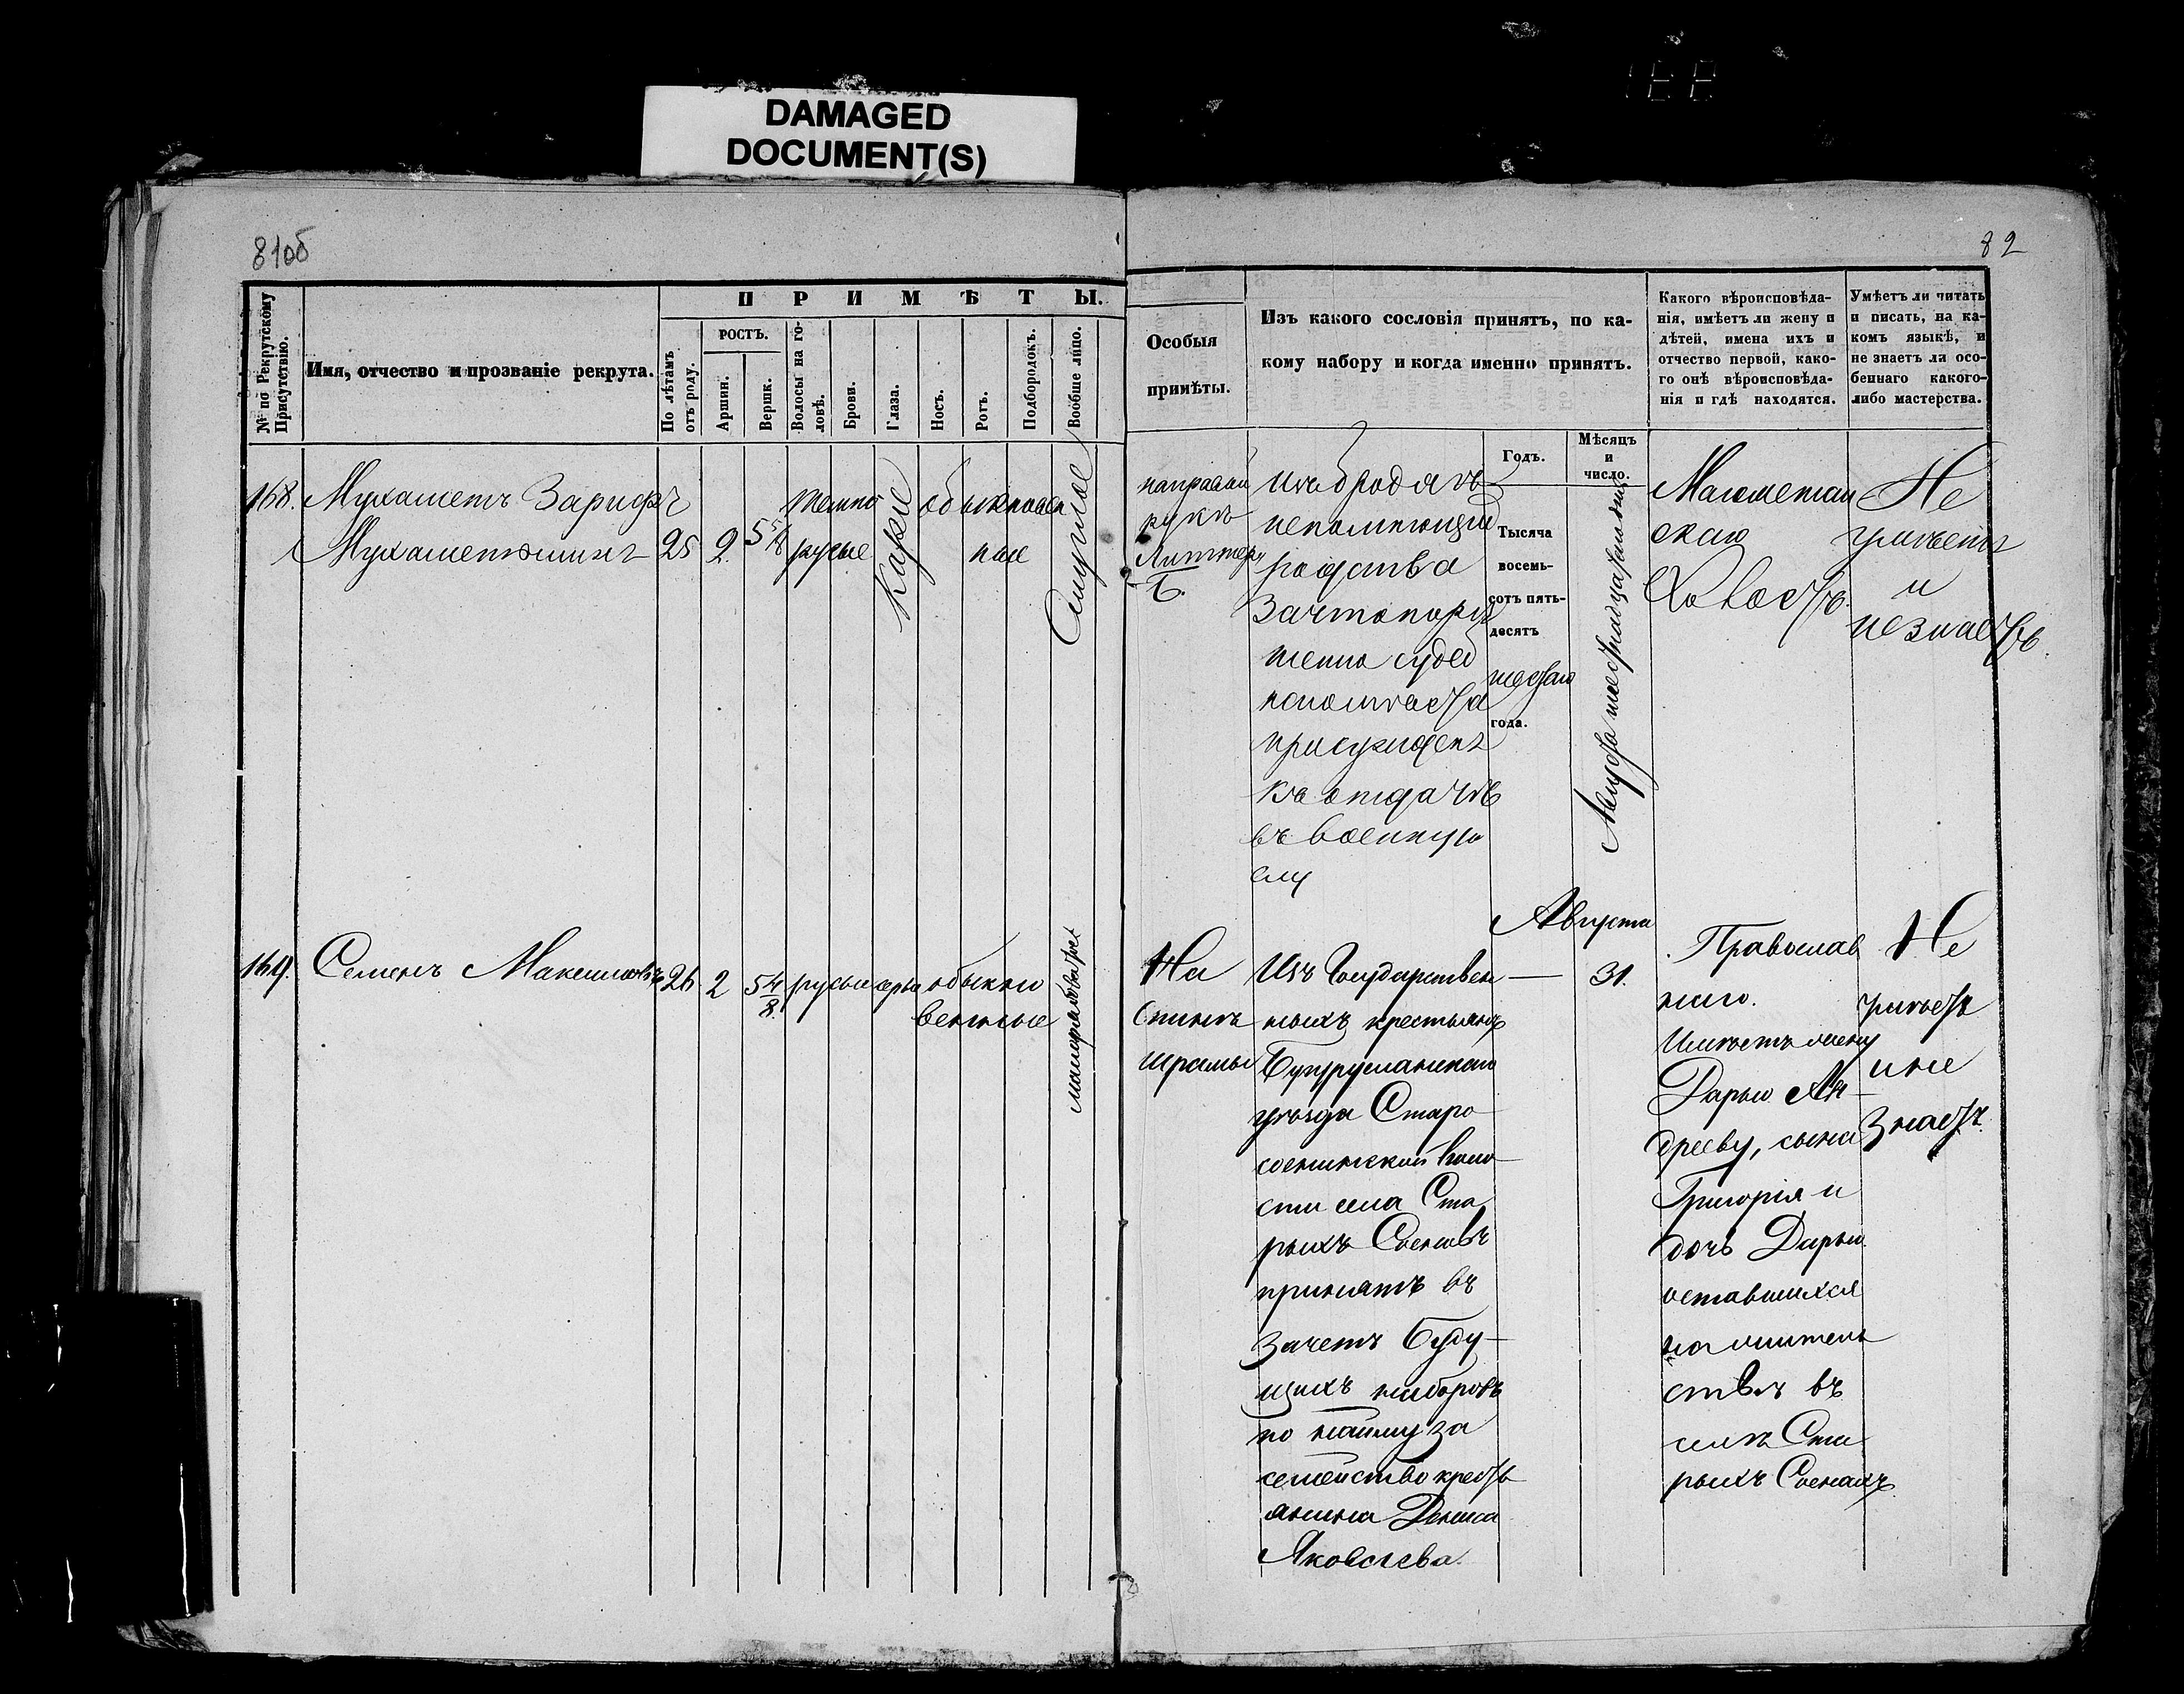 DAMAGED
DOCUMENT(S)
81об
82
№ по Рекрутскому
Присутствію.
Имя, отчество и прозваніе рекрута.
ПРИМѢТЫ.
По лѣтамъ
отъ роду.
РОСТЪ.
Аршин.
Вершк.
Волосы на го-
ловѣ.
Брови.
Глаза.
Носъ.
Ротъ.
Подбородокъ.
Вообще лицо.
Особыя
примѣты.
Изъ какого сословія принятъ, по ка-
кому набору и когда именно принятъ.
Годъ.
Мѣсяцъ
и
число.
Какого вѣроисповѣда-
нія, имѣетъ ли жену и
дѣтей, имена ихъ и
отчество первой, како-
го онѣ вѣроисповѣда-
нія и гдѣ находятся.
Умѣетъ ли читать
и писать, на ка-
комъ языкѣ, и
не знаетъ ли осо-
беннаго какого-
либо мастерства.
168. Мухаметъ Зарифъ
Мухаметшинъ 25 2 5 5/8
темно
русые
Каріе
обыкновен
ные
Смуглое
направой
рукѣ
Литтера
Б.
изъ бродягъ
непомнющій
родства
Зачтопорѣ
шенію судеб
наго мѣста
присужденъ
къ отдачѣ
въ военную
слу
Тысяча
восемь-
сотъ пять-
десятъ
шестаго
года.
Августа шестнадцатаго дня
Магометан
скаго
Холостъ.
Не
умѣетъ
и
незнаетъ.
169. Семенъ Максимовъ 26 2 5 4/8 русые сѣрые обыкно
венные
малорябоватое
На
спинѣ
шрамы
Изъ Государствен
ныхъ крестьянъ
Бугурусланскаго
уѣзда Старо
соснинской воло
сти села Ста
рыхъ Сосновъ
принятъ въ
зачетъ буду-
щихъ наборовъ
по найму за
семейство кресть
янина Дениса
Яковлева.
Августа
— 31.
Православ
наго.
Имѣетъ жену
Дарью Ан-
дрееву, сына
Григорія и
дочь Дарью
оставшихся
на житель
ствѣ въ
селѣ Ста
рыхъ Соснахъ.
Не
умѣетъ
и не
знаетъ.